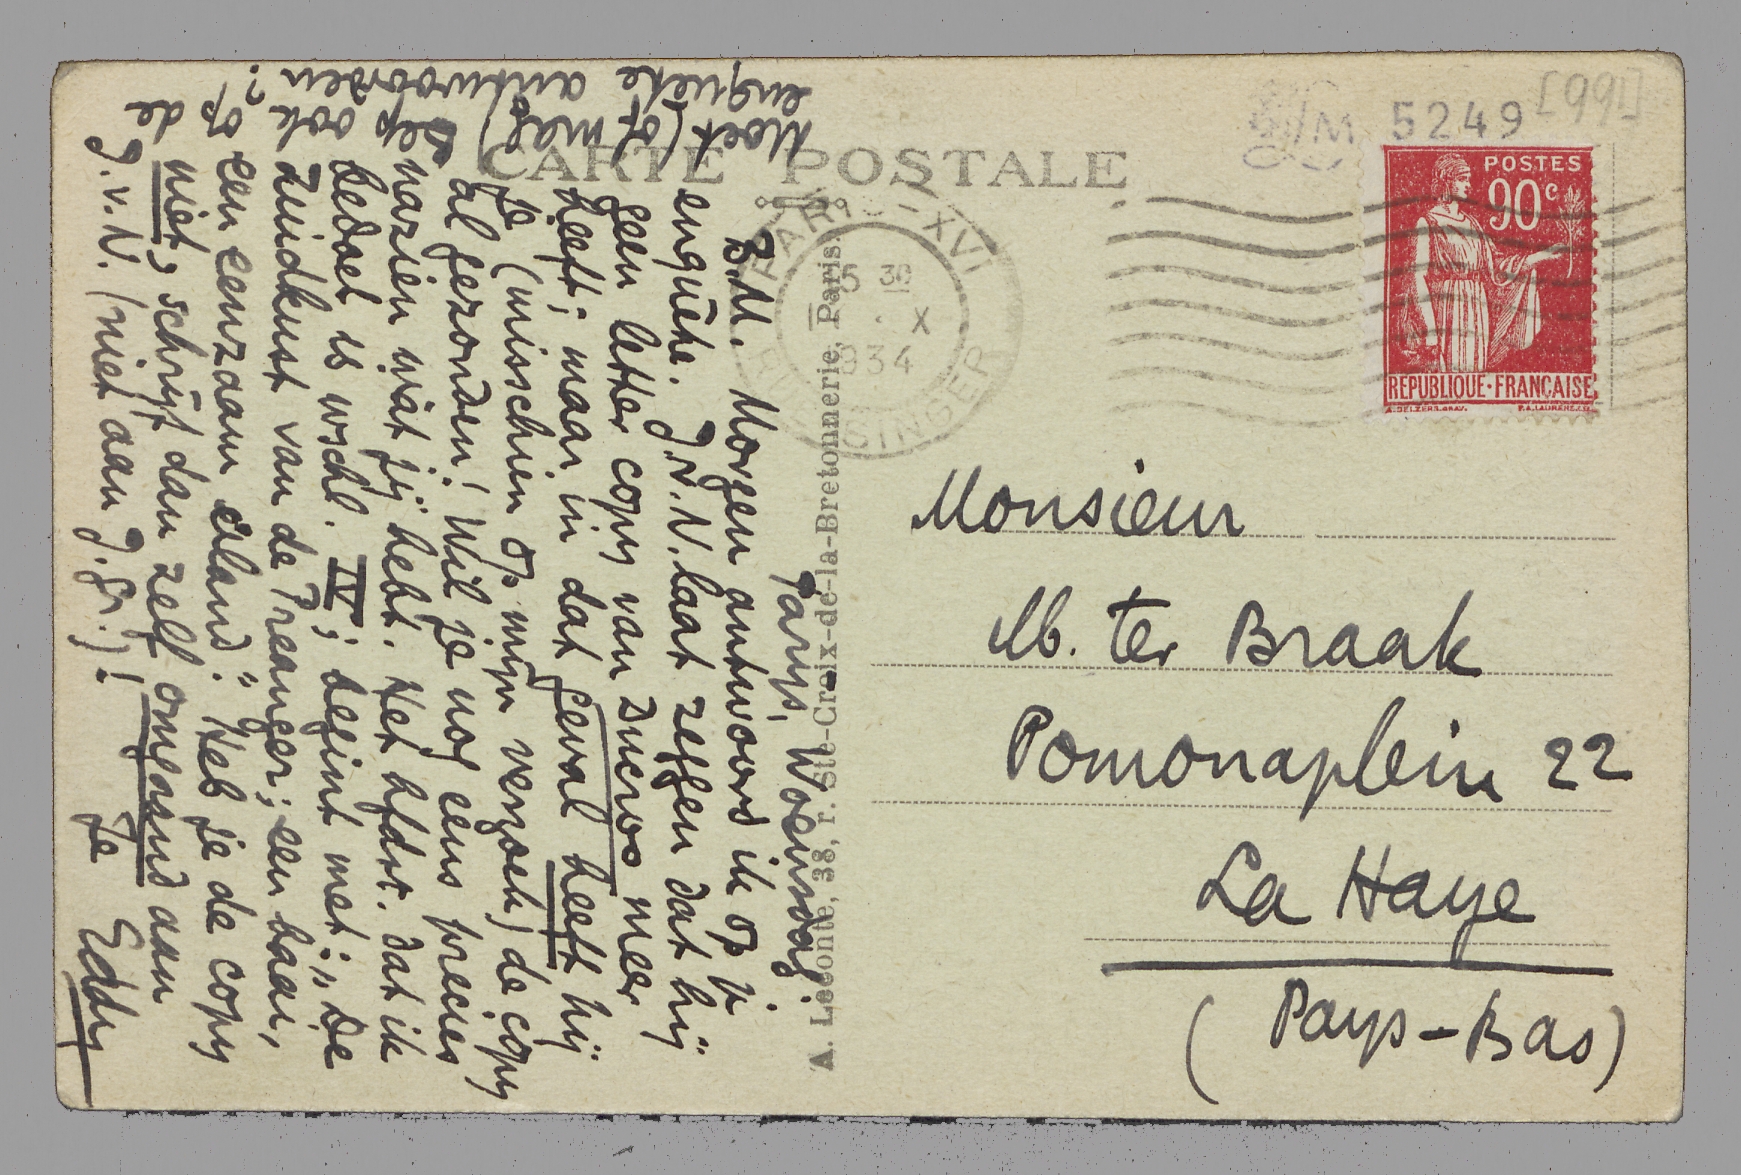 CARTE POSTALE
A. Leconte, 38, r. Ste-Croix-de-la-Bretonnerie, Paris.
5249
[99]
POSTES
90c
REPUBLIQUE·FRANÇAISE
PARIS-XVI
5 30
X
1934
SINGER
Monsieur
M. ter Braak
Pomonaplein 22
La Haye
(Pays-Bas)
Parijs, Woensdag.
B.M. Morgen antwoord ik op je
enquête. J.v.N. laat zeggen dat hij
geen letter copy van Ducroo meer
heeft; maar in dat geval heeft hij
je (misschien op mijn verzoek) de copy
al gezonden! Wil je nog eens precies
nazien wàt jij hebt. Het hfdst. dat ik
bedoel is wschl. IV; begint met: "De
Zuidkust van de Preanger; een baai,
een eenzaam eiland." Heb je de copy
niet, schrijf dan zelf omgaand aan
J.v.N. (niet aan J.Gr.)!
Je
Eddy
Moet (of mag) Bep ook op de
enquête antwoorden?